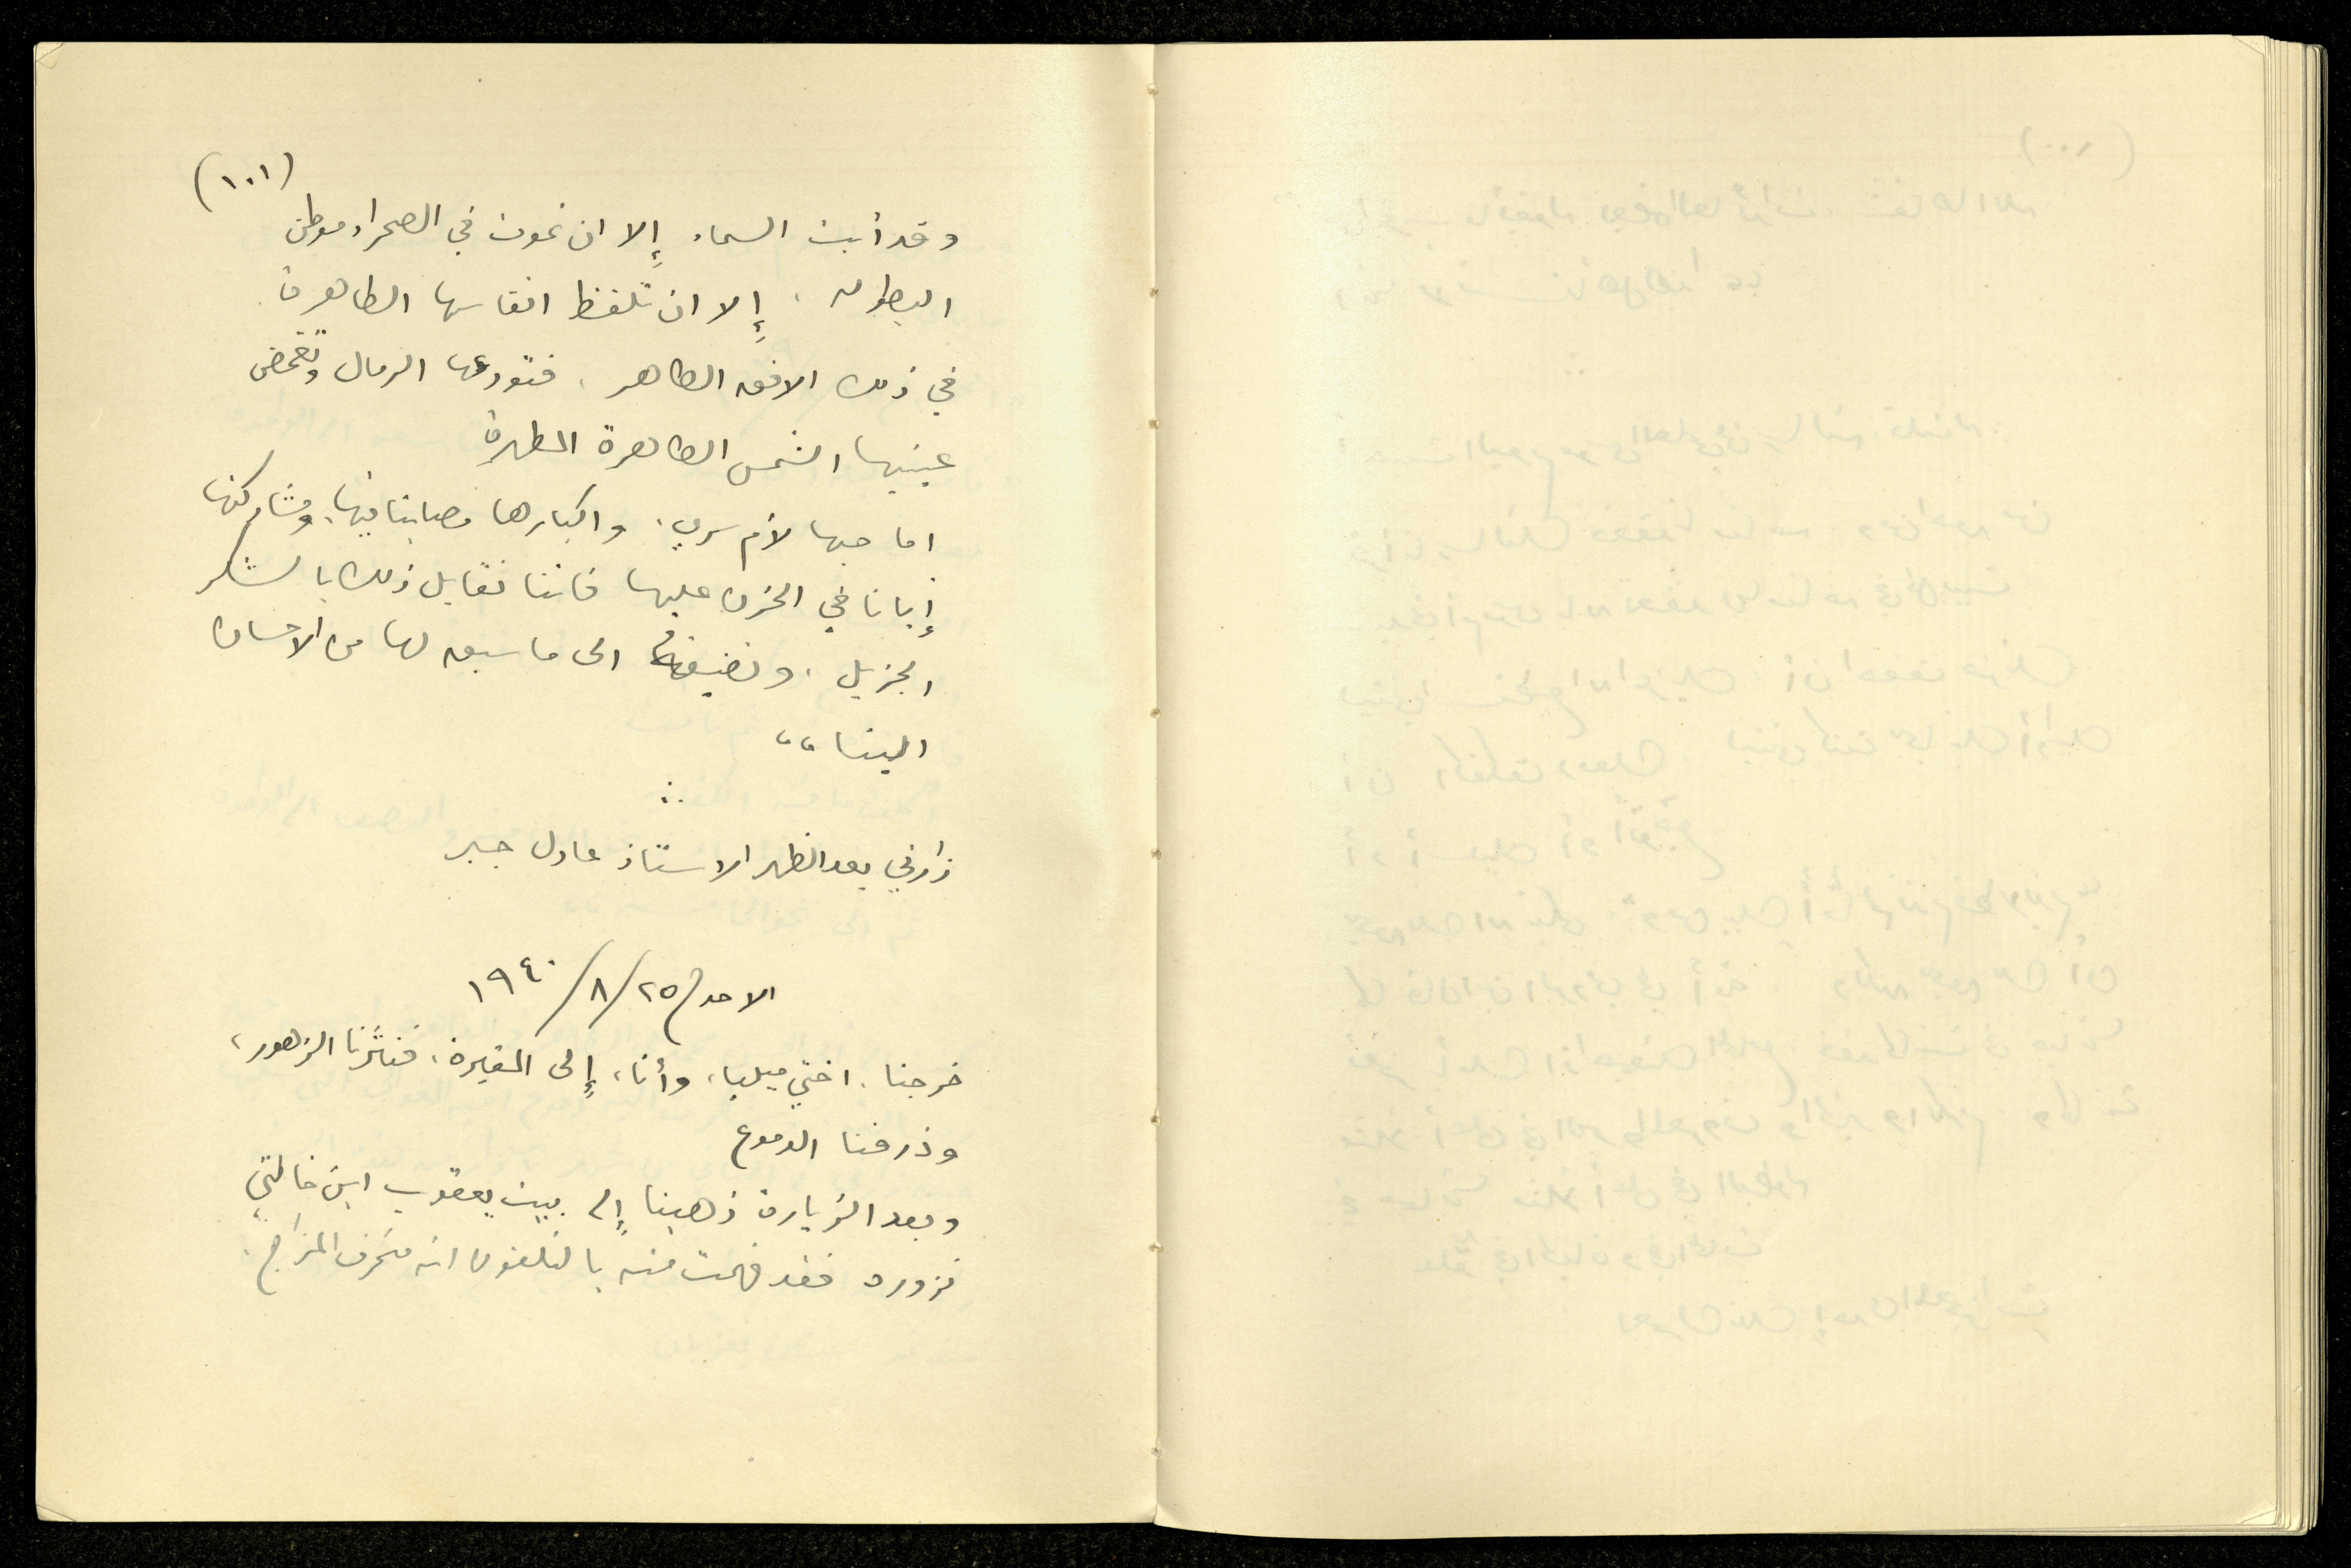 (١٠١)
وقد أبت السماء إِلا ان تموت في الصحراء موطن
البطولة، إِلا ان تلفظ انفاسها الطاهرة
في ذلك الافق الطاهر، فتودعها الرمال وتغمض
عينيها الشمس الطاهرة المطهرة
اما حبها لأم سري، واكبارها مصابنا فيها، ومشاركتها
إِيانا في الحزن عليها فاننا نقابل ذلك بالشكر
الجزيل، ونضيفه الى ما سبق لها من الاحسان
الينا،،
زارني بعد الظهر الاستاذ عادل جبر
الاحد ٢٥/٨/١٩٤٠
خرجنا، اختي ميليا، وأنا، إِلى المقبرة، فنثرنا الزهور،
وذرفنا الدموع
وبعد الزيارة ذهبنا إِلى بيت يعقوب ابن خالتي
نزوره فقد فهمت منه بالتلفون انه منحرف المزاج.